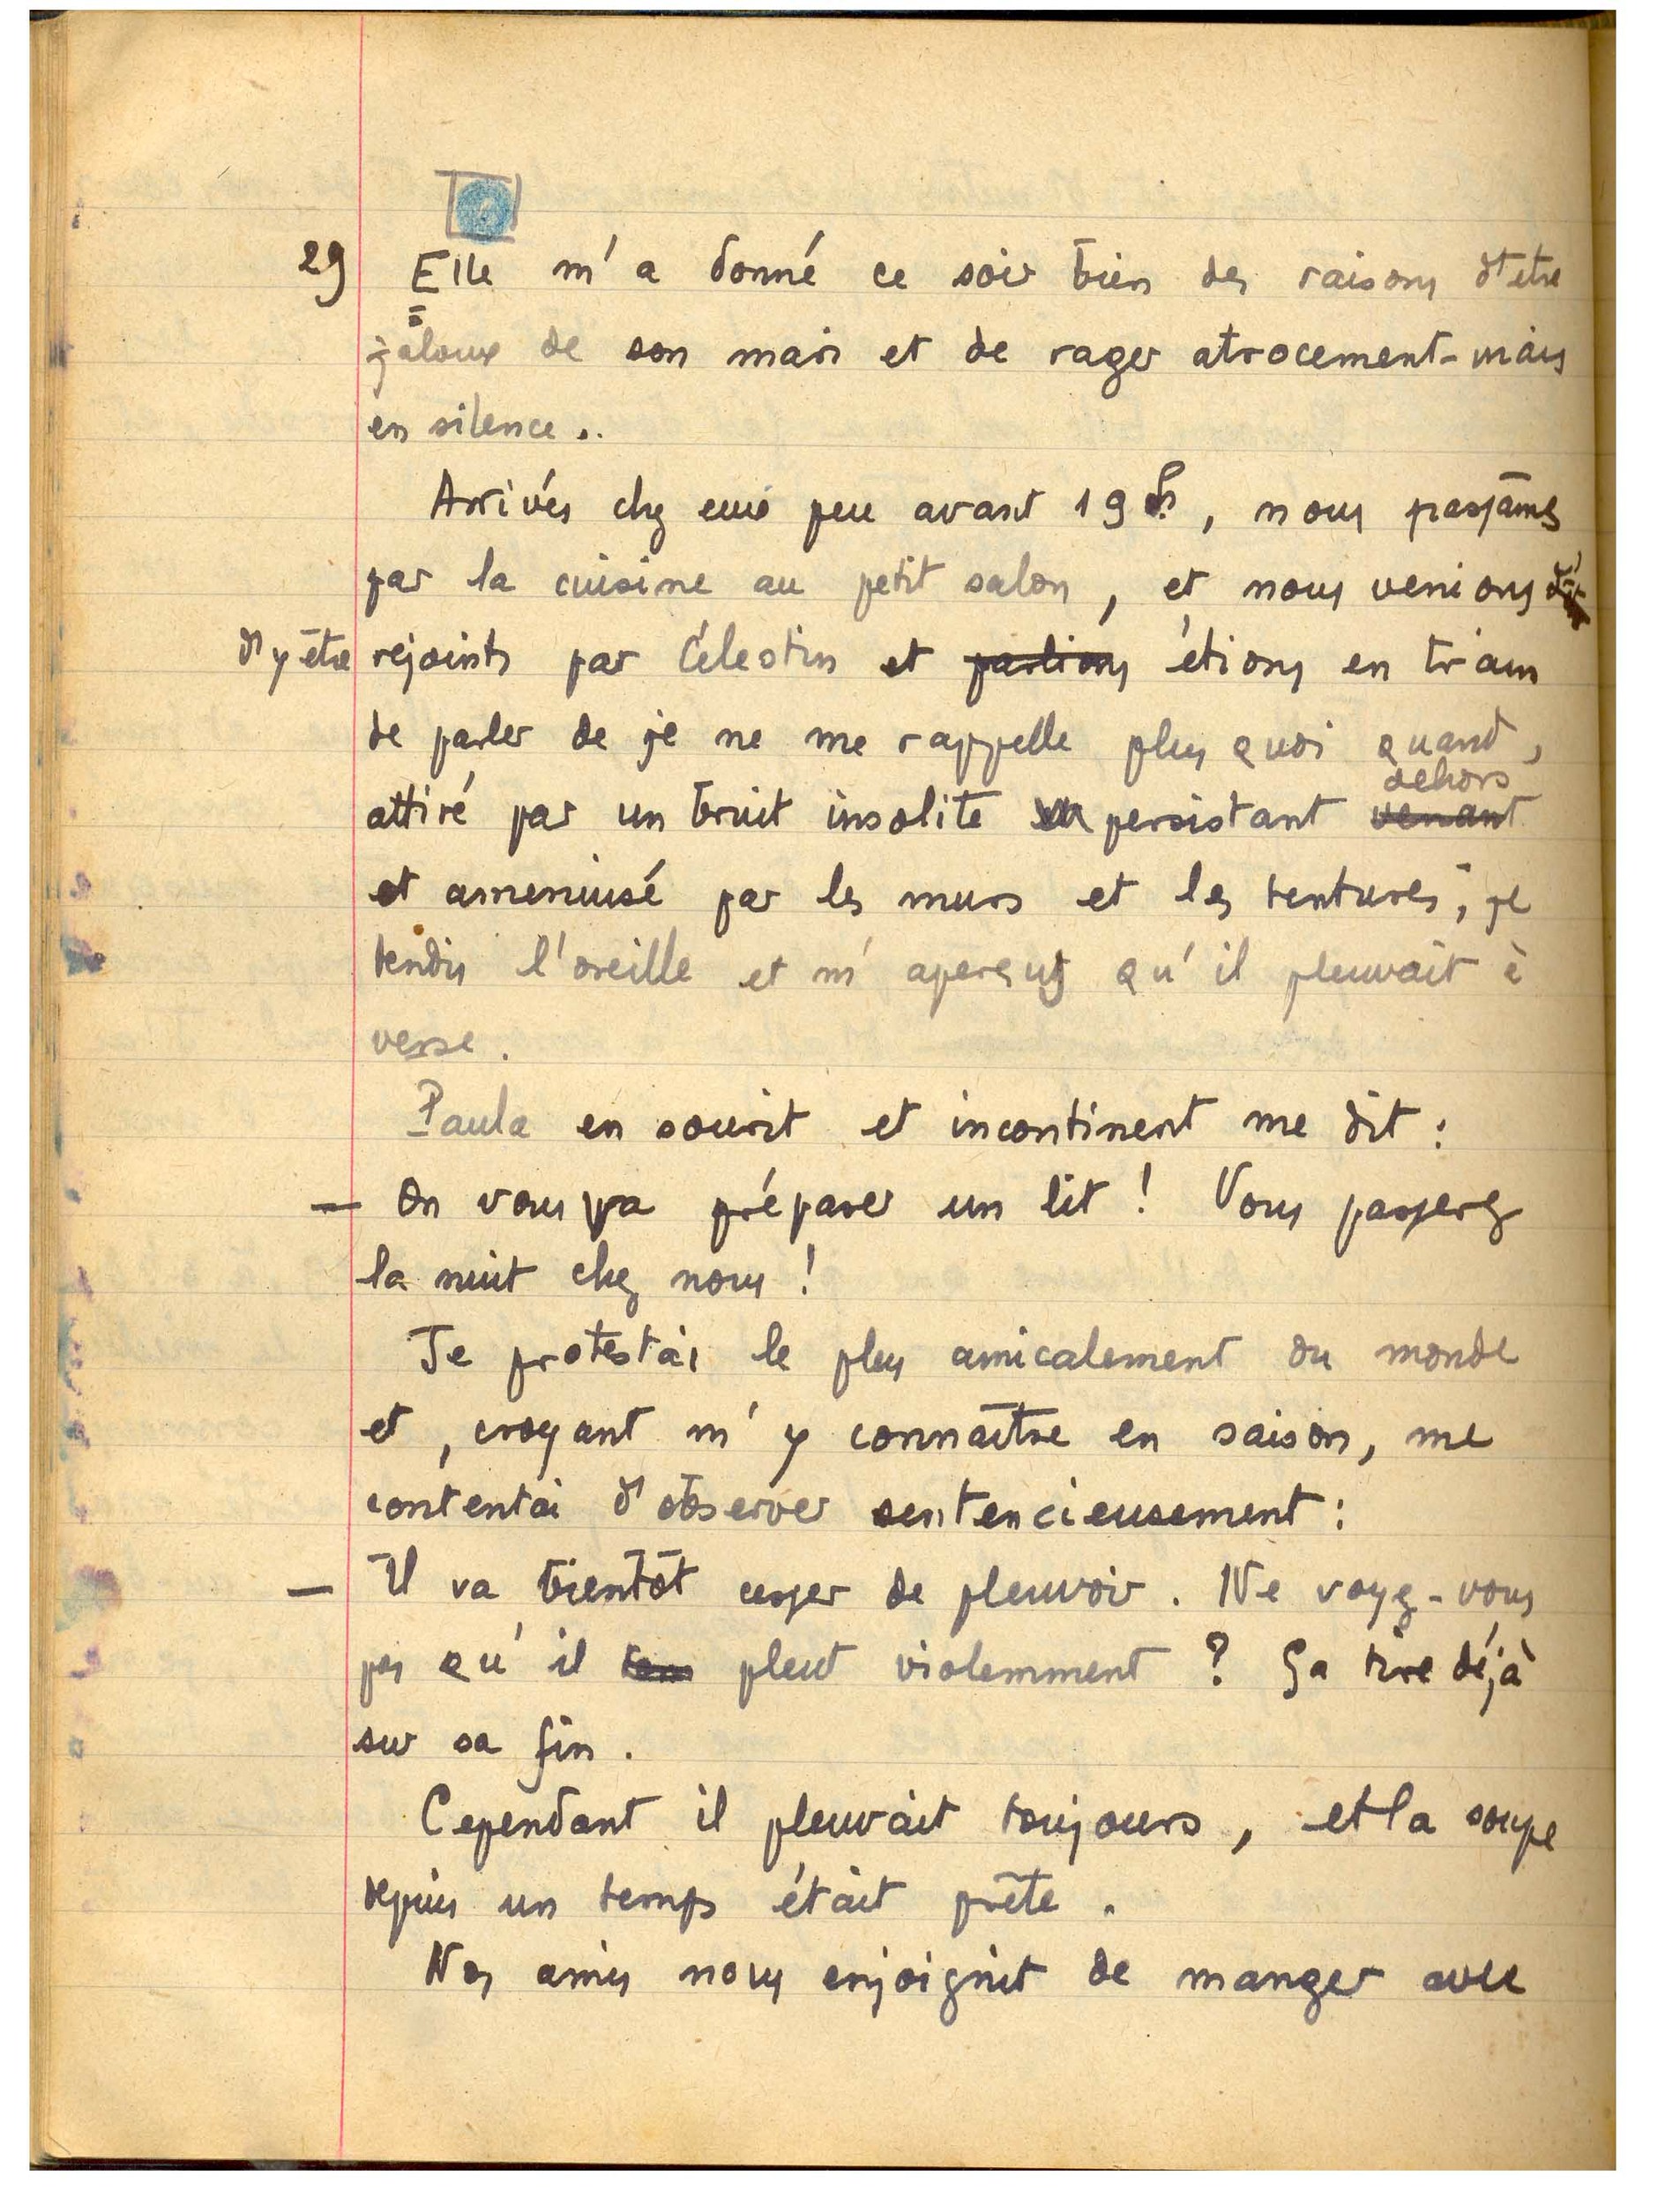 29 Elle m'a donné ce soir bien des raisons d'etre
jaloux de son mari et de rager atrocement - mais
en silence ..
Arrivés chez eux peu avant 19 h, nous passâmes
par la cuisine au petit salon, et nous venions
d'y être rejoints par Célestin et partions étions en train
de parler de je ne me rappelle plus quoi quand,
dehors
attiré par un bruit insolite persistant venant
et amenuisé par les murs et les tentures, je
tendis l'oreille et m'aperçus qu'il pleuvait à
verse.
Paula en sourit et incontinent me dit :
— On vous va préparer un lit ! Vous passerez
la nuit chez nous !
Je protestai le plus amicalement du monde
et, croyant m'y connaître en saison, me
contentai d'observer sentencieusement :
— Il va bientôt cesser de pleuvoir. Ne voyez-vous
pas qu'il pleut violemment ? Ça tire déjà
sur sa fin.
Cependant il pleuvait toujours, et la soupe
depuis un temps était prête.
Nos amis nous enjoignit de manger avec